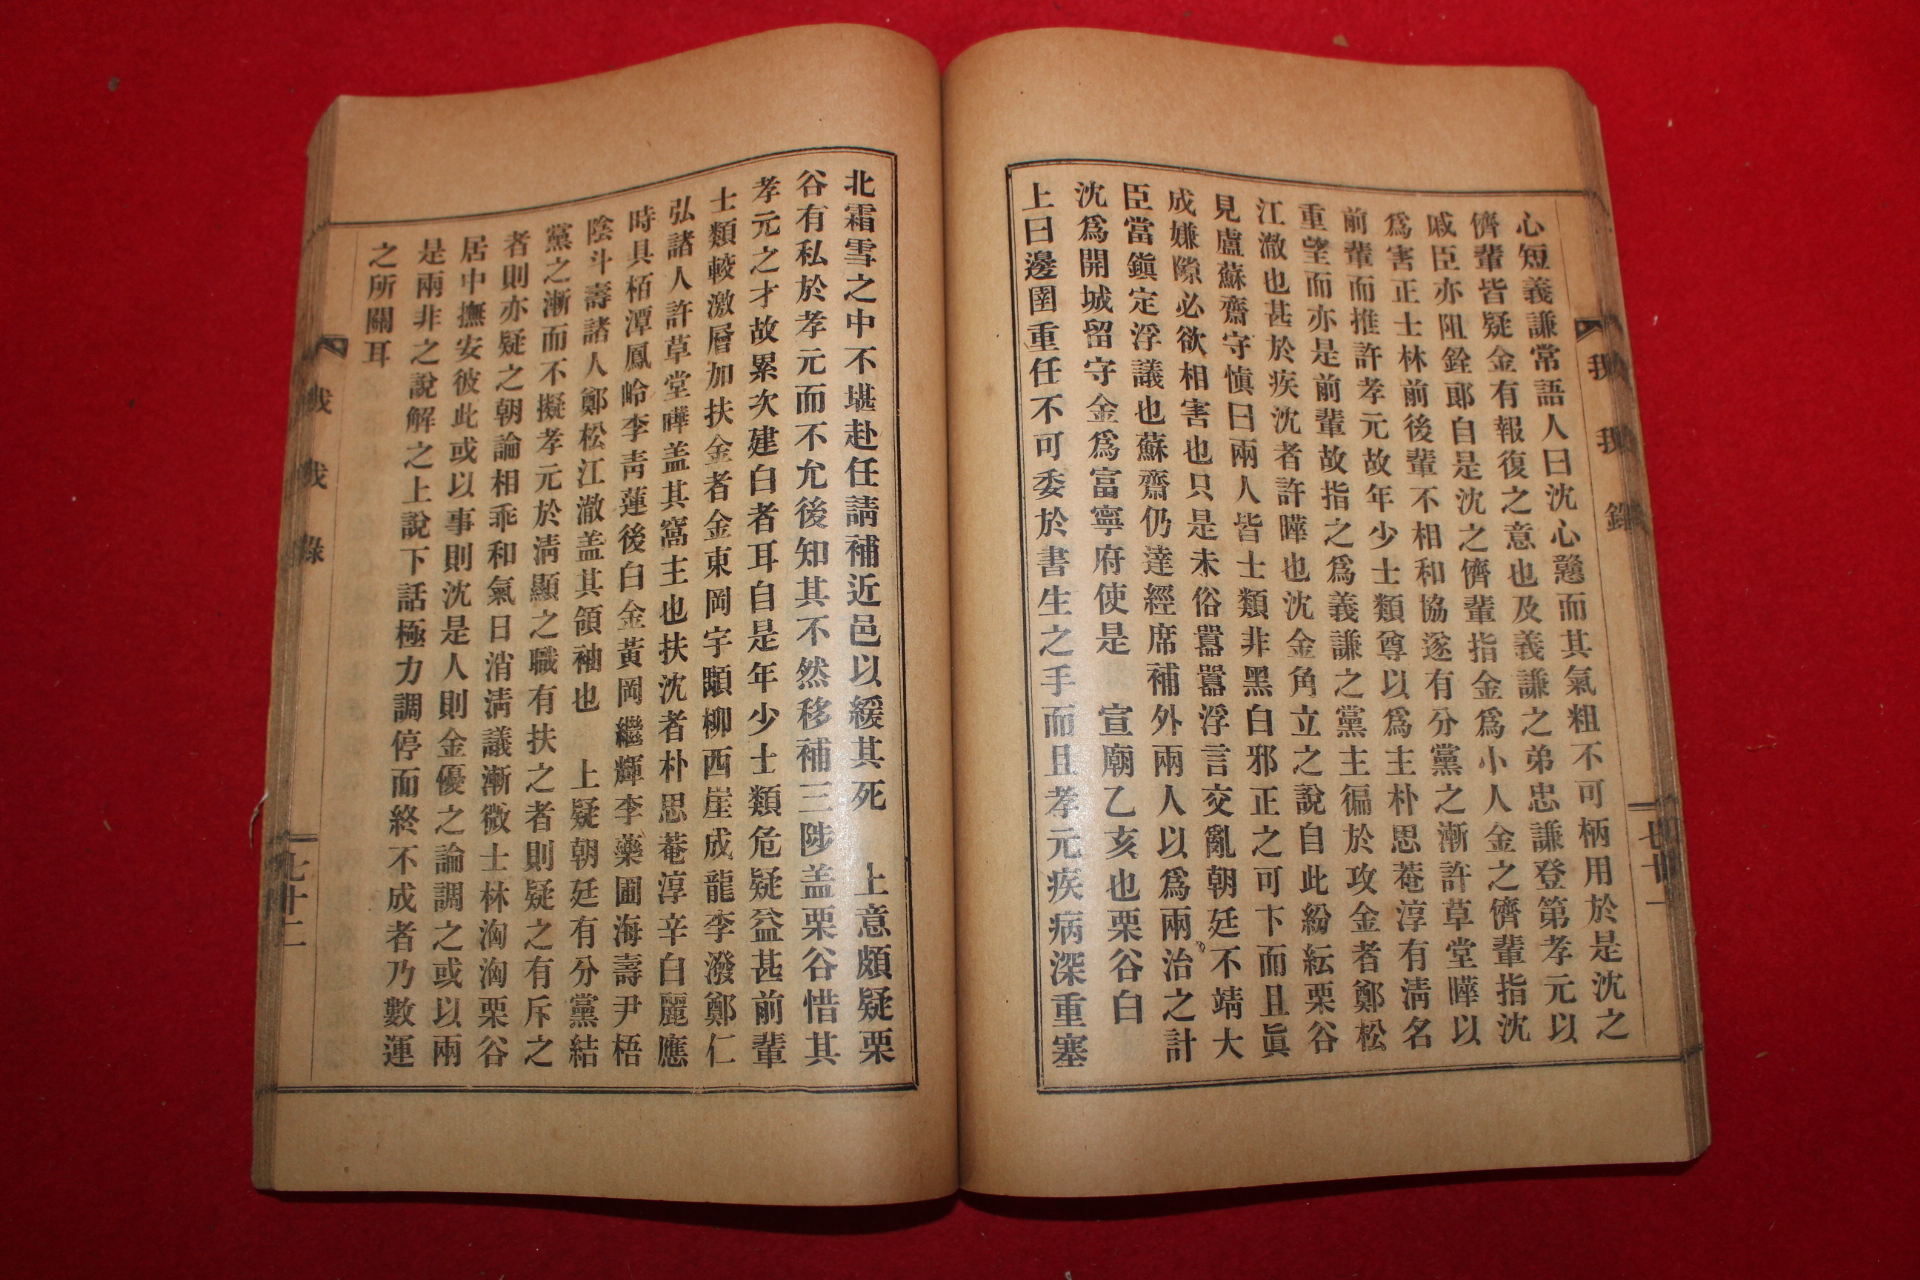 心短義謙常語人曰沈心戇而其氣粗不可柄用於是沈之
儕輩皆疑金有報復之意也及義謙之弟忠謙登第孝元以
戚臣亦阻銓郎自是沈之儕輩指金爲小人金之儕輩指沈
爲害正士林前後輩不相和協遂有分黨之漸許草堂曄以
前輩而推許孝元故年少士類尊以爲主朴思菴淳有淸名
重望而亦是前輩故指之爲義謙之黨主徧於攻金者鄭松
江澈也甚於疾沈者許曄也沈金角立之說自此紛紜栗谷
見盧蘇齋守愼曰兩人皆士類非黑白邪正之可卞而且眞
成嫌隙必欲相害也只是末俗囂囂浮言交亂朝廷不靖大
臣當鎭定浮議也蘇齋仍達經席補外兩人以爲兩治之計
沈爲開城留守金爲富寧府使是 宣廟乙亥也栗谷白
上曰邊圉重任不可委於書生之手而且孝元疾病深重塞
我我錄
七十一
北霜雪之中不堪赴任請補近邑以緩其死 上意頗疑栗
谷有私於孝元而不允後知其不然移補三陟盖栗谷惜其
孝元之才故累次建白者耳自是年少士類危疑益甚前輩
士類較激層加扶金者金東岡宇顒柳西崖成龍李潑鄭仁
弘諸人許草堂曄盖其窩主也扶沈者朴思菴淳辛白麗應
時具栢潭鳳岭李靑蓮後白金黃岡繼輝李藥圃海壽尹梧
陰斗壽諸人鄭松江澈盖其領袖也 上疑朝廷有分黨結
黨之漸而不擬孝元於淸顯之職有扶之者則疑之有斥之
者則亦疑之朝論相乖和氣日消淸議漸微士林洶洶栗谷
居中撫安彼此或以事則沈是人則金優之論調之或以兩
是兩非之說解之上說下話極力調停而終不成者乃數運
之所關耳
我我錄
七十二